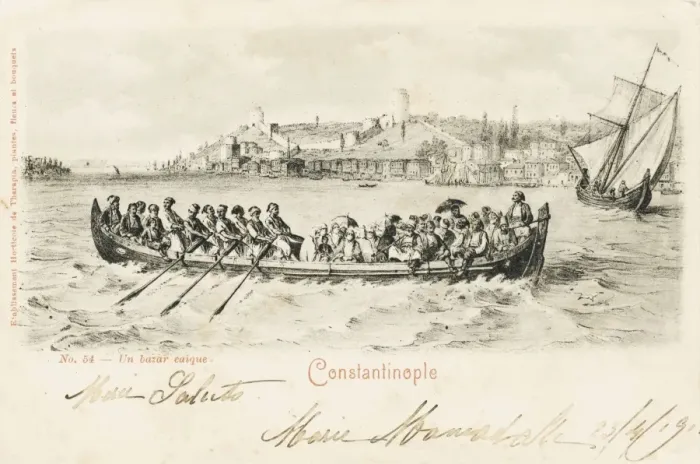 Etablissement Horticole de Therapia, plantes, fleurs et bouquets
No. 54 — Un bazar caïque.
Constantinople
Saluto
Marie